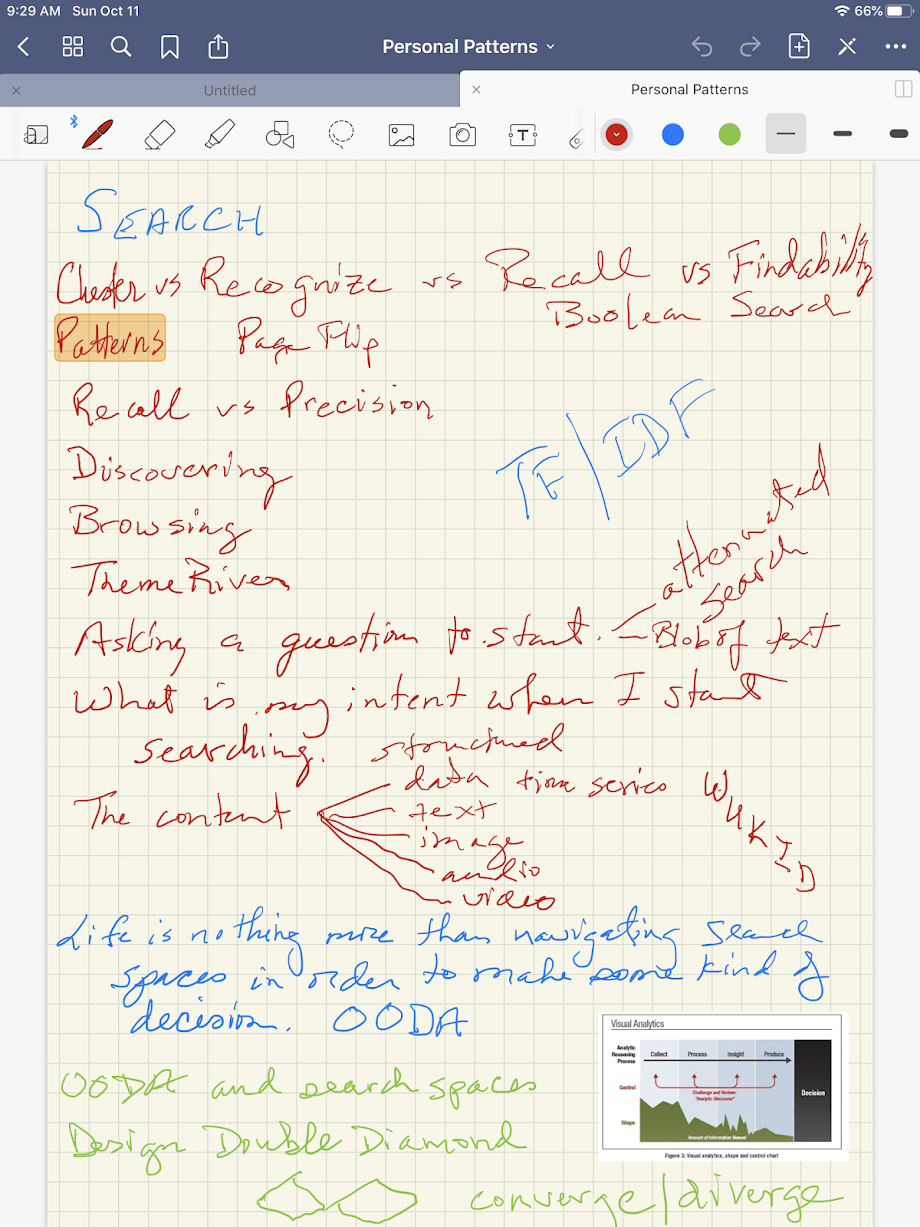 9:29 AM Sun Oct 11
66%
Personal Patterns
Untitled
Personal Patterns
T
SEARCH
Cluster vs Recognize vs Recall vs Findability
Boolean Search
Patterns Page Flip
Recall vs Precision
TF/IDF
Discovering
Browsing
ThemeRiver
attenuated
search
Asking a question to start. — Blob of text
What is my intent when I start
searching. structured
data time series
The content
text
image
audio
video
W
U
K
I
D
Life is nothing more than navigating search
spaces in order to make some kind of
decision. OODA
Visual Analytics
Analytic
Reasoning
Process
Collect Process Insight Produce
Control
Challenge and Review:
"Analytic Discourse"
Decision
Shape
Amount of Information Viewed
Figure 3: Visual analytics, shape and control chart
OODA and search spaces
Design Double Diamond
converge/diverge